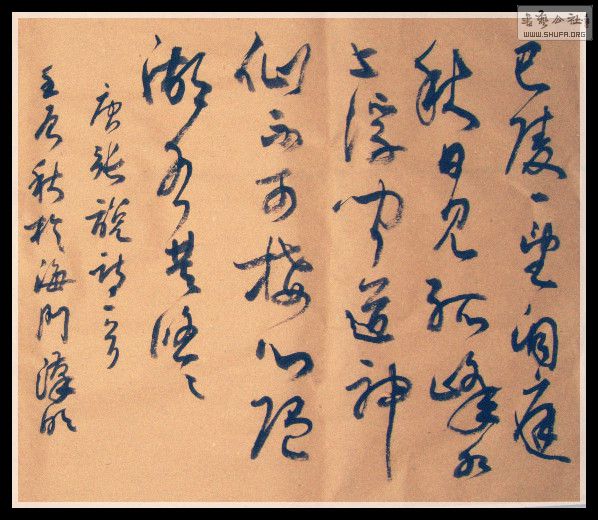 巴陵一望洞庭
秋日見孤峰水
上浮聞道神
仙不可接心隨
湖水共悠々
唐張說詩一首
壬辰秋於海門
書藝公社
WWW.SHUFA.ORG